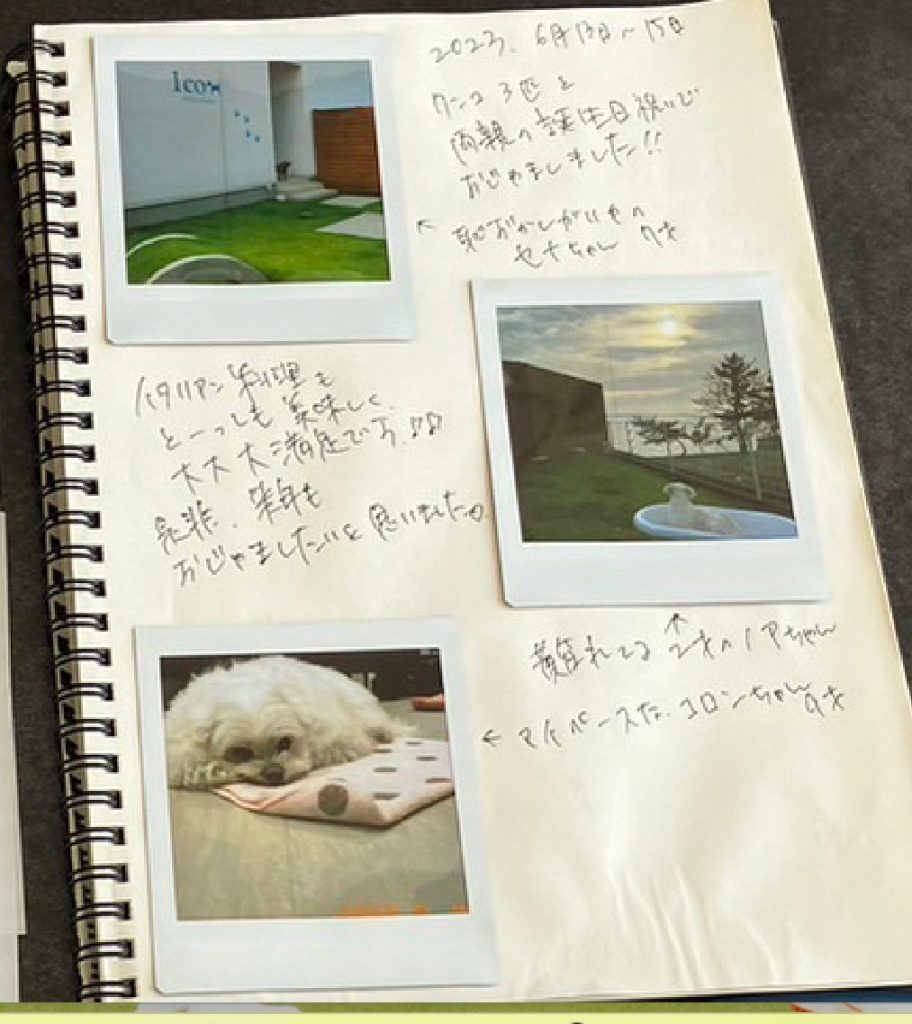 Ico
2023. 6月13日〜15日
ワンコ3匹と
両親の誕生日祝いで
おじゃましました!!
← 恥ずかしがりやの
セナちゃん 9才
イタリアン料理も
とーっても美味しく
大大大満足です♪♪
是非、来年も
おじゃましたいと思いました♡
↑
2才のノアちゃん
← マイペースな、コロンちゃん
9才